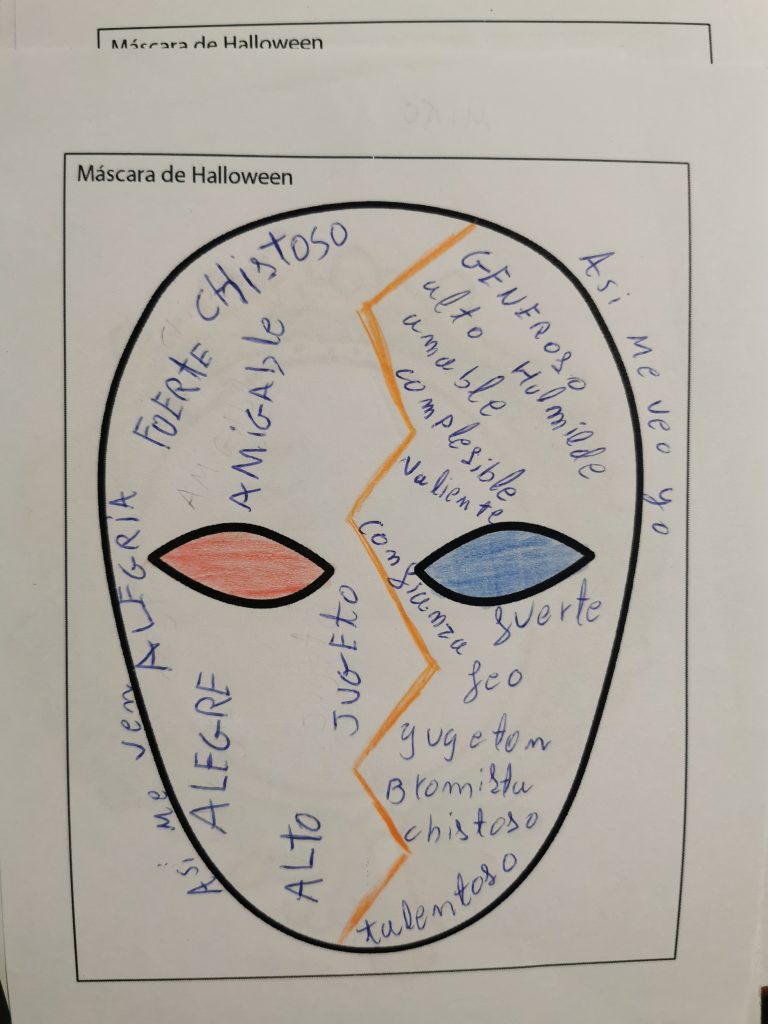 Máscara de Halloween
Máscara de Halloween
CHistoso
FUERTE
AMiGAblE
ALEGRÍA
JUGEtO
ALEGRE
ALto
Asi ME ven
GENEROSO
alto Humilde
amable
complesible
valiente
confianza
fuerte
feo
gugeton
Bromista
chistoso
talentoso
Asi ME veo yo